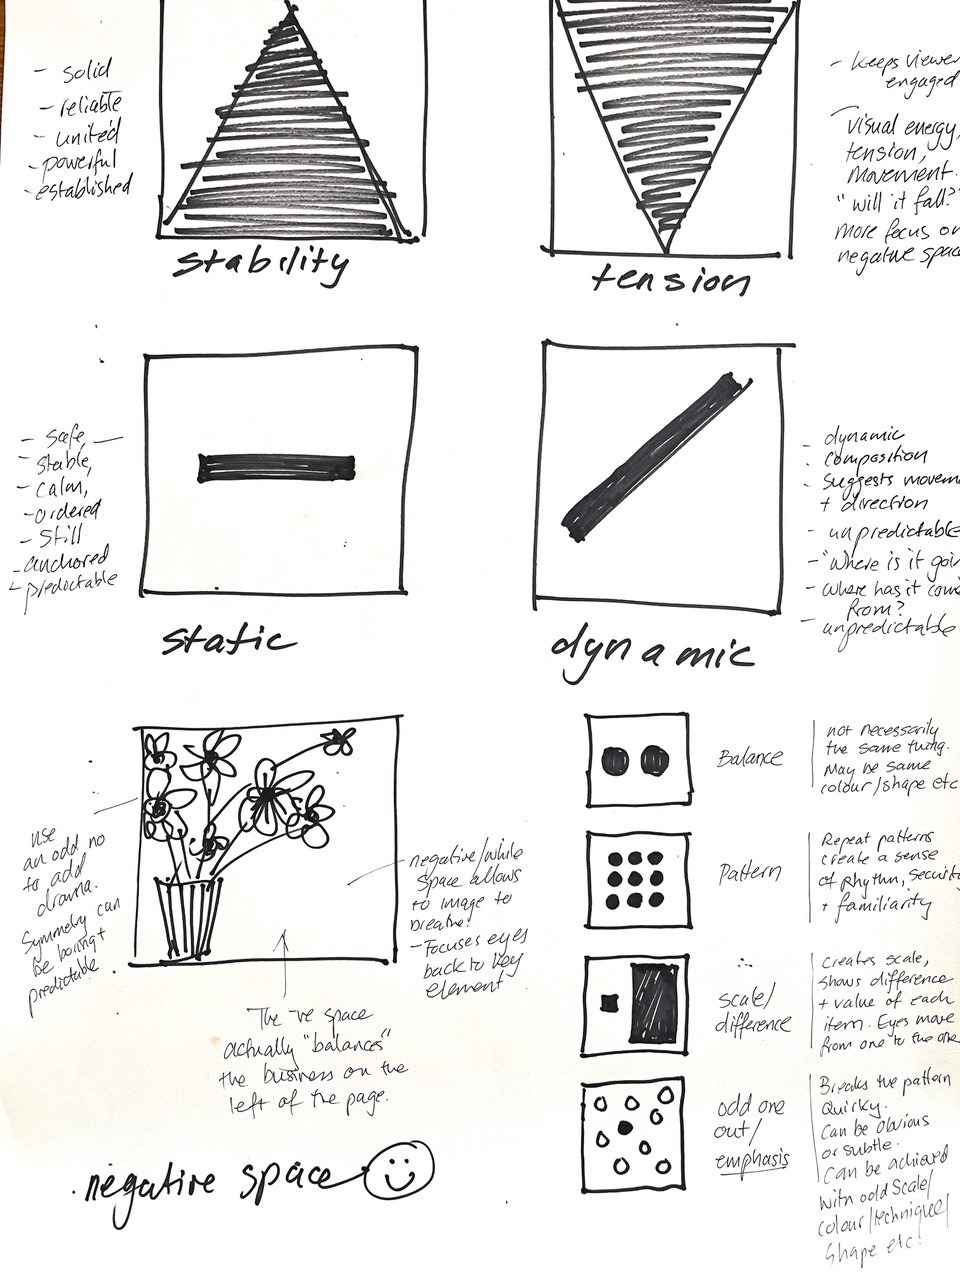 - solid
- reliable
- united
- powerful
- established
stability
- keeps viewer
engaged
visual energy,
tension,
movement.
"will it fall?"
more focus on
negative space
tension
- safe
- stable,
- calm,
- ordered
- still
- anchored
- predictable
static
- dynamic
composition
suggests movem
+ direction
- unpredictable
- "Where is it goin
- where has it come
from?
- unpredictable
dynamic
use
an odd no
to add
drama.
Symmetry can
be boring +
predictable.
negative/white
space allows
to image to
breathe.
- Focuses eyes
back to key
element
The -ve space
actually "balances"
the business on the
left of the page.
negative space
Balance
not necessarily
the same thing.
May be same
colour/shape etc
Pattern
Repeat patterns
create a sense
of rhythm, security
+ familiarity
scale/
difference
Creates scale,
shows difference
+ value of each
item. Eyes move
from one to the other
odd one
out/
emphasis
Breaks the pattern
Quirky.
Can be obvious
or subtle.
Can be achieved
with odd scale/
colour/technique/
shape etc.